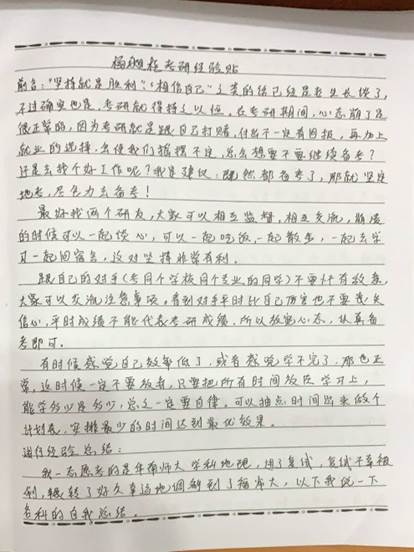 杨湘粧考研经验贴
前言:"坚持就是胜利","相信自己"之类的话已经是老生长谈了,
不过确实也是,考研就得持之以恒。在考研期间,心态崩了是
很正常的,因为考研就是跟自己打赌,付出不一定有回报,再加上
就业的选择,会使我们摇摆不定,总会想要不要继续备考?
还是去找个好工作呢?我是建议:既然都备考了,那就坚定
地考,尽全力去备考!
最好找两个研友,大家可以相互监督,相互交流,崩溃
的时候可以一起谈心,可以一起吃饭,一起散步,一起去学习
一起回宿舍,这对坚持非常有利。
跟自己的对手(考同个学校同个专业的同学)不要怀有敌意,
大家可以交流注意事项。看到对手平时比自己厉害也不要丧失
信心,平时成绩不能代表考研成绩,所以放宽心态,认真备
考即可。
有时候感觉自己效率低了,或者感觉学不完了,那也正
常,这时候一定不要放弃,只要把所有时间放在学习上,
能学多少是多少,总之一定要自律。可以抽点时间出来做个
计划表,安排最少的时间达到最优效果。
进行经验总结:
我一志愿考的是华南师大学科地理,进了复试,复试不幸被
刷,辗转了好久幸运地调剂到了福师大,以下我说一下
各科的自我总结。